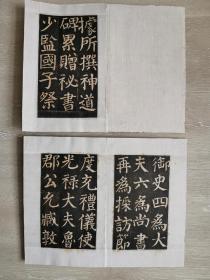 據所撰神道
碑累贈祕書
少監國子祭
御史四為大
夫六為尚書
再為採訪節
度充禮儀使
光祿大夫魯
郡公允臧敦